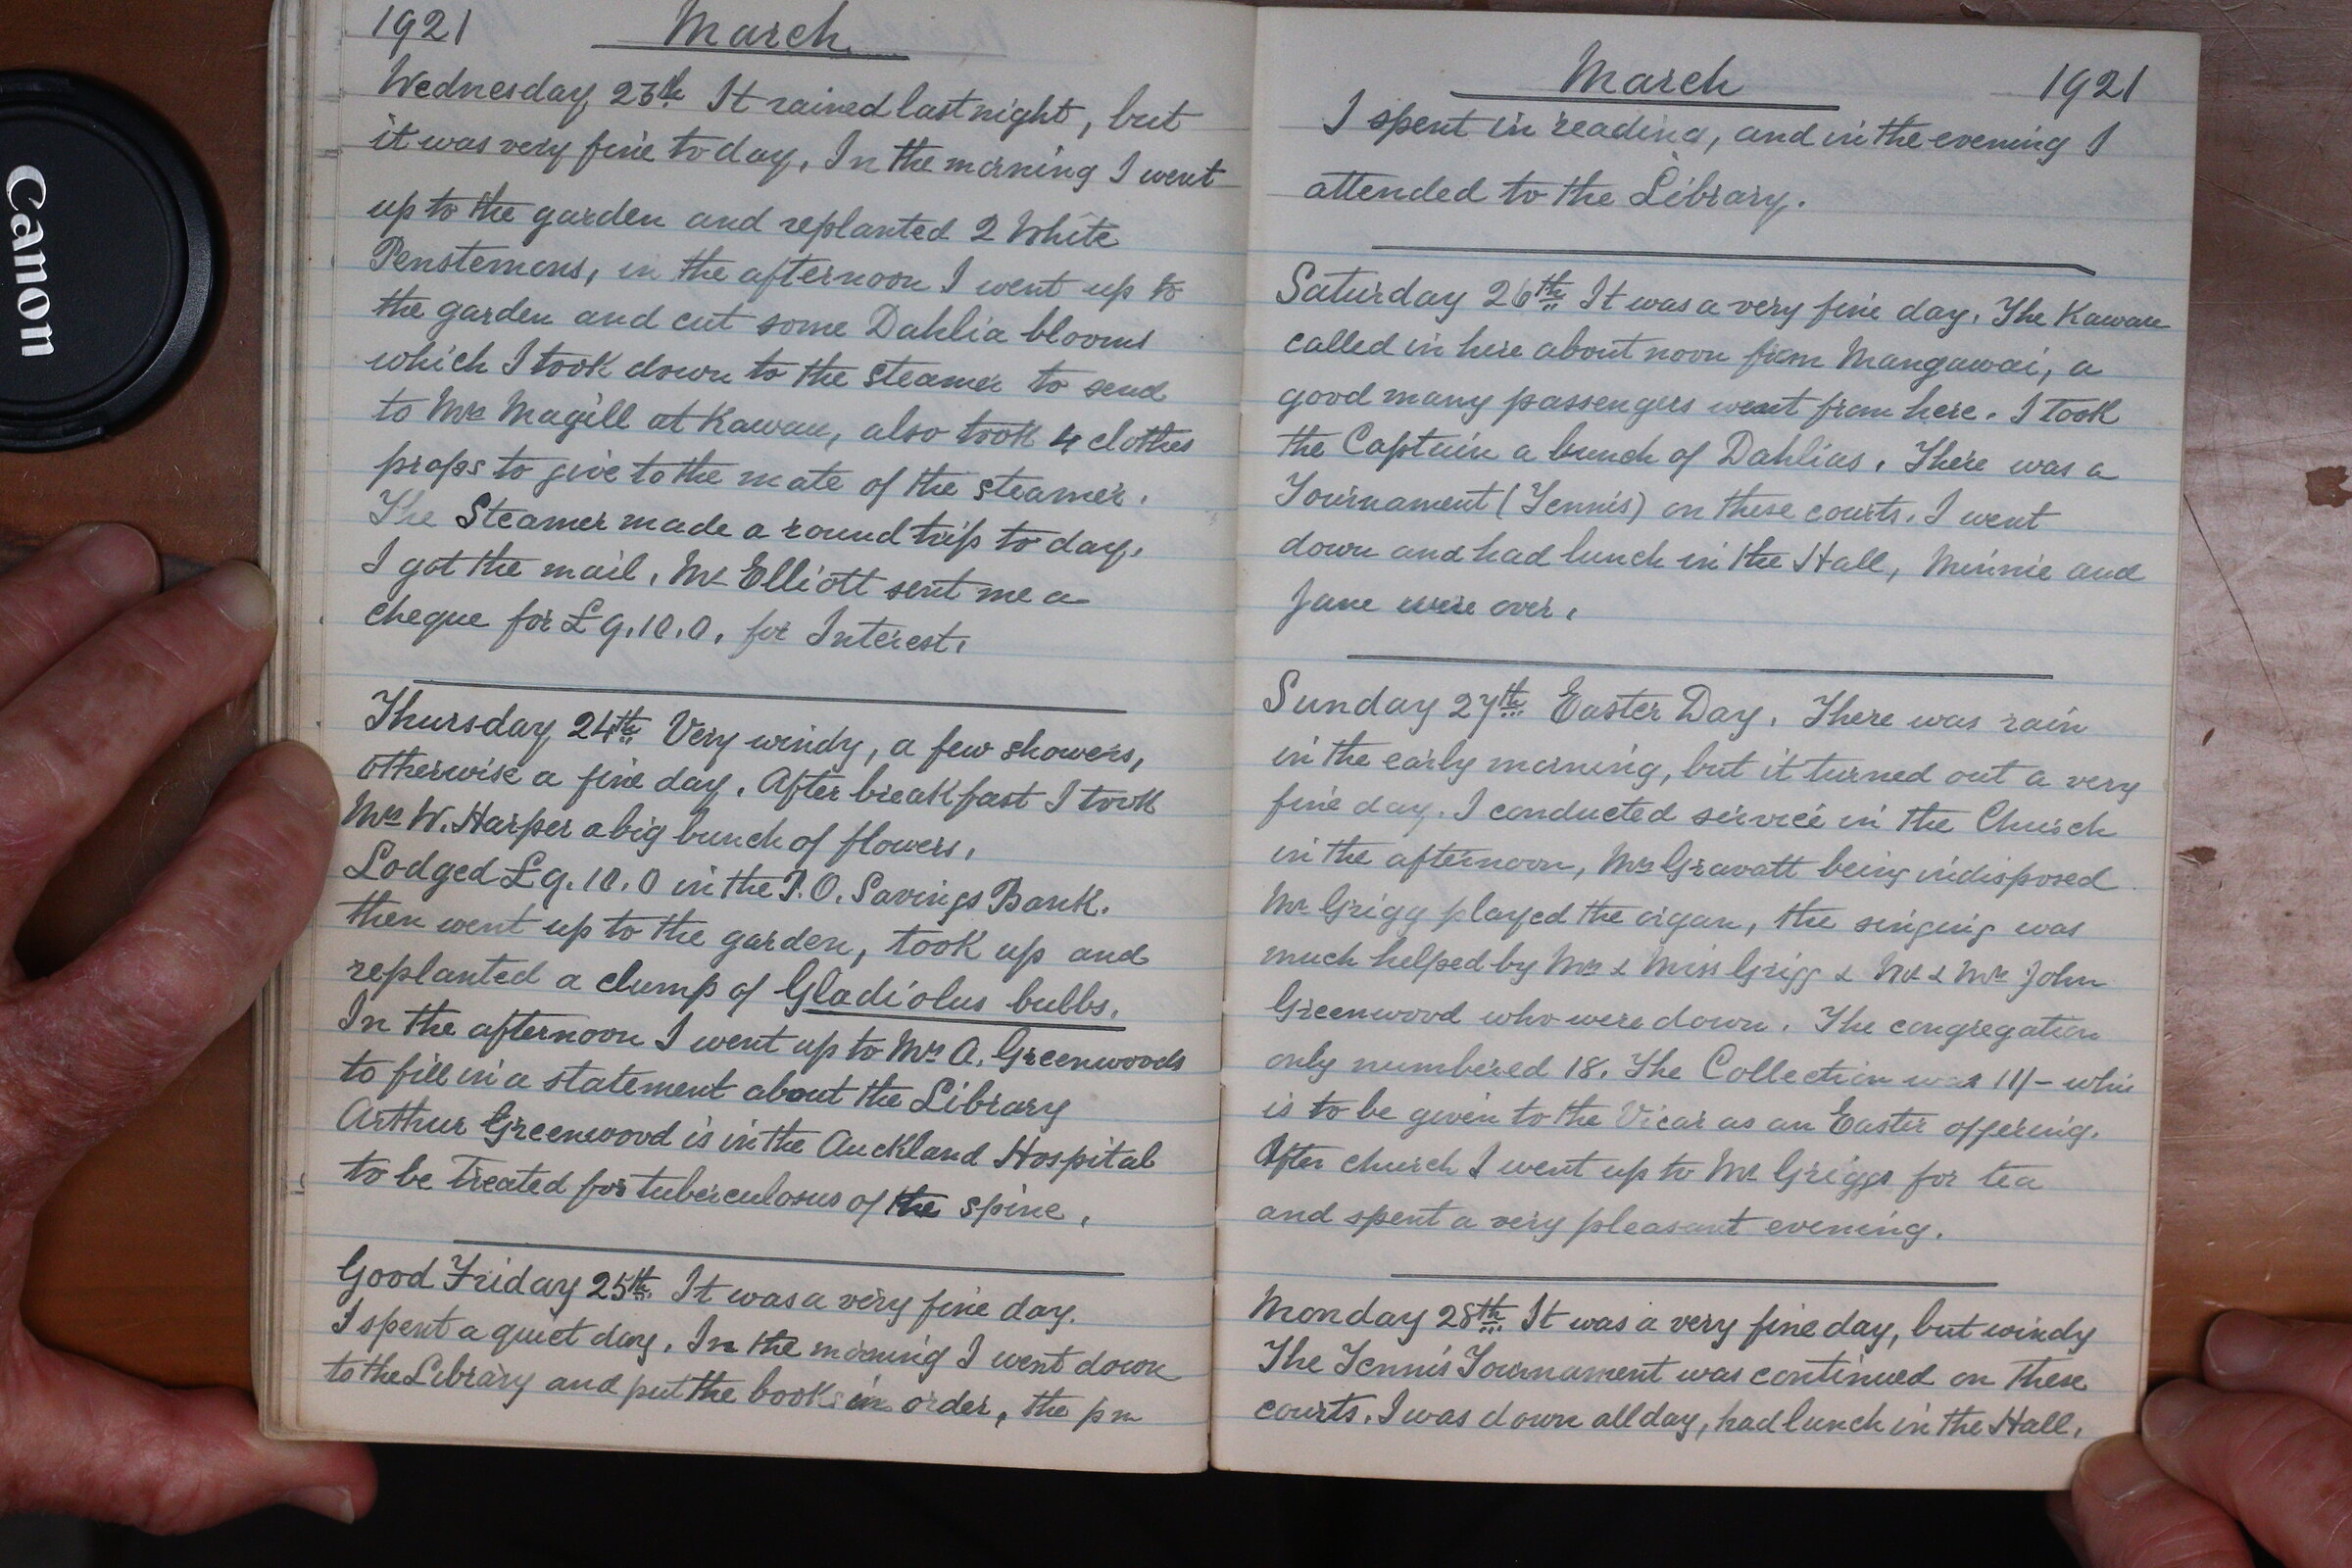 Canon
1921 March
Wednesday 23th It rained last night, but
it was very fine to day. In the morning I went
up to the garden and replanted 2 White
Penstemons, in the afternoon I went up to
the garden and cut some Dahlia blooms
which I took down to the steamer to send
to Mrs Magill at Kawau, also took 4 clothes
props to give to the mate of the steamer.
The Steamer made a round trip to day.
I got the mail. Mr Elliott sent me a
cheque for £9.10.0. for Interest.
Thursday 24th Very windy, a few showers,
otherwise a fine day. After breakfast I took
Mrs W. Harper a big bunch of flowers.
Lodged £9.10.0 in the P.O. Savings Bank.
then went up to the garden, took up and
replanted a clump of Gladiolus bubbs.
In the afternoon I went up to Mrs A. Greenwoods
to fill in a statement about the Library
Arthur Greenwood is in the Auckland Hospital
to be treated for tuberculosus of the spine.
Good Friday 25th It was a very fine day.
I spent a quiet day. In the morning I went down
to the Library and put the books in order, the pm
March 1921
I spent in reading, and in the evening I
attended to the Library.
Saturday 26th It was a very fine day. The Kawau
called in here about noon from Mangawai, a
good many passengers went from here. I took
the Captain a bunch of Dahlias. There was a
Tournament (Tennis) on these courts. I went
down and had lunch in the Hall, Minnie and
Jane were over.
Sunday 27th Easter Day. There was rain
in the early morning, but it turned out a very
fine day. I conducted service in the Church
in the afternoon, Mrs Gravatt being indisposed
Mr Grigg played the organ, the singing was
much helped by Mrs & Miss Grigg & Mr & Mrs John
Greenwood who were down. The congregation
only numbered 18. The Collection was 11/- whic
is to be given to the Vicar as an Easter offering.
After church I went up to Mr Griggs for tea
and spent a very pleasant evening.
Monday 28th It was a very fine day, but windy
The Tennis Tournament was continued on these
courts. I was down all day, had lunch in the Hall.